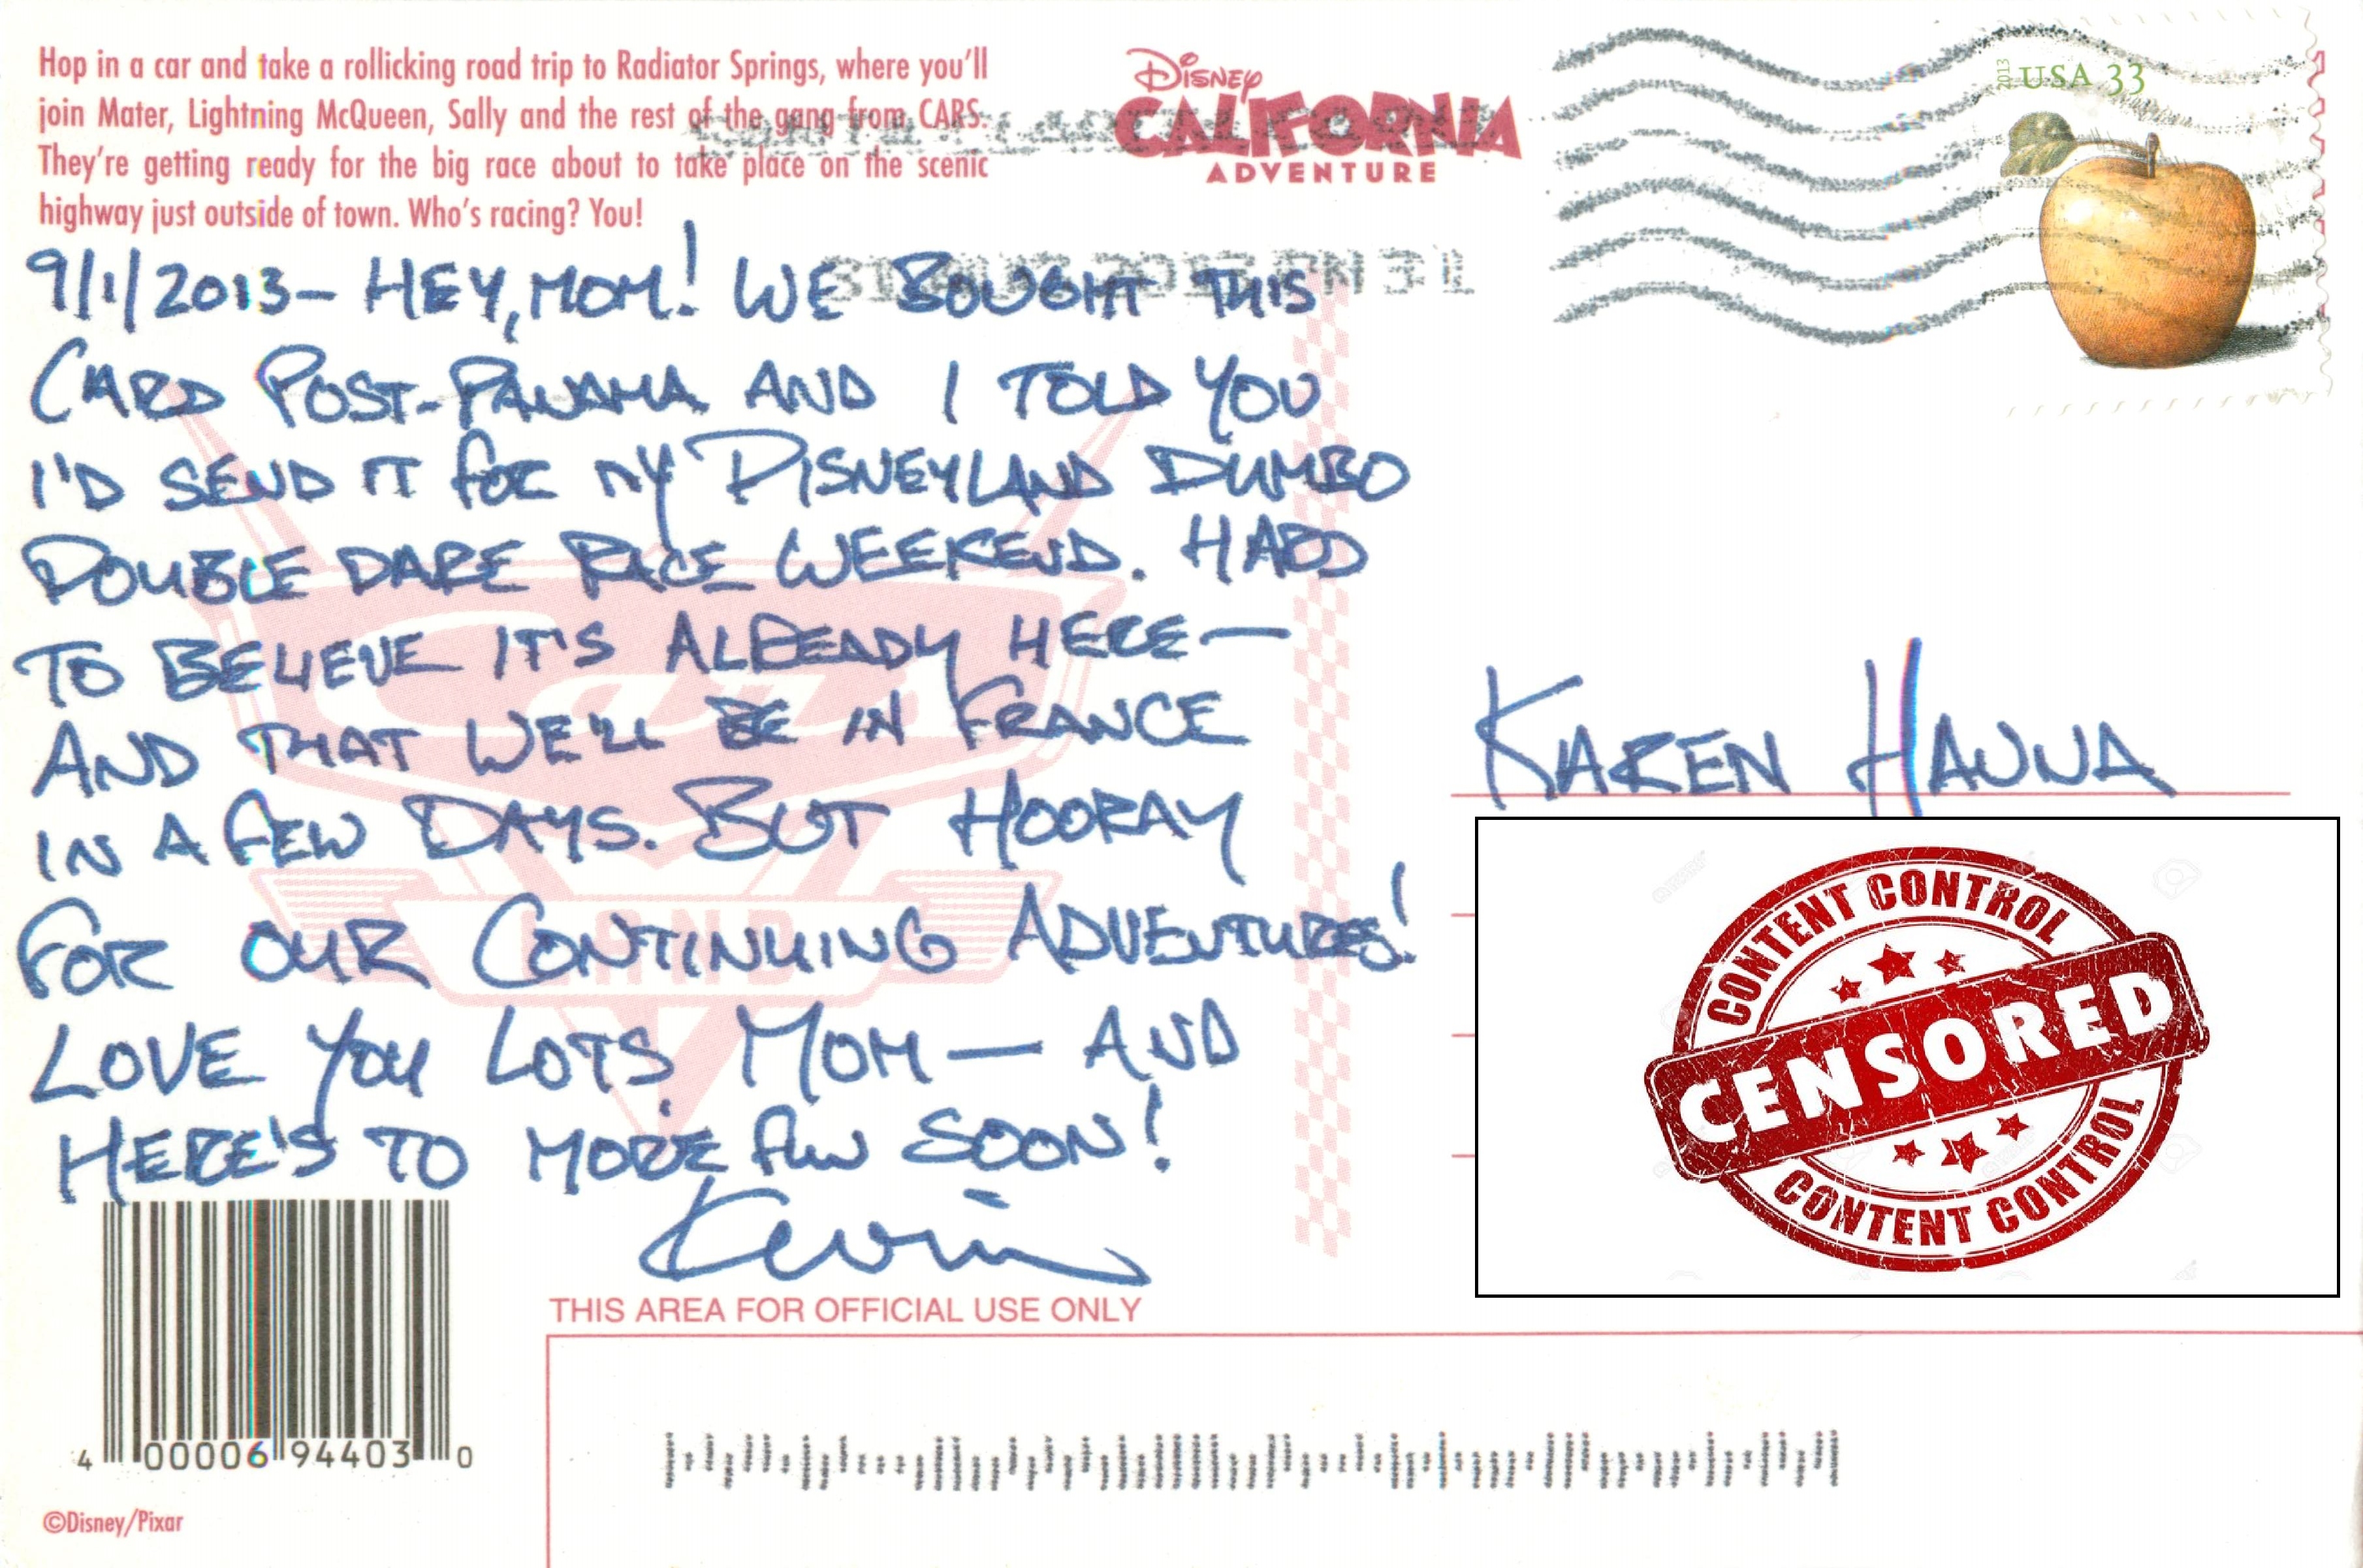 Hop in a car and take a rollicking road trip to Radiator Springs, where you'll
join Mater, Lightning McQueen, Sally and the rest of the gang from CARS.
They're getting ready for the big race about to take place on the scenic
highway just outside of town. Who's racing? You!
DISNEY
CALIFORNIA
ADVENTURE
2013 USA 33
2013 PM 3 L
9/1/2013 - HEY, MOM! WE BOUGHT THIS
CARD POST-PANAMA AND I TOLD YOU
I'D SEND IT FOR MY DISNEYLAND DUMBO
DOUBLE DARE RACE WEEKEND. HARD
TO BELIEVE IT'S ALREADY HERE —
AND THAT WE'LL BE IN FRANCE
IN A FEW DAYS. BUT HOORAY
FOR OUR CONTINUING ADVENTURES!
LOVE YOU LOTS, MOM — AND
HERE'S TO MORE FUN SOON!
Kevin
Cars
LAND
KAREN HANNA
CONTENT CONTROL
CENSORED
CONTENT CONTROL
THIS AREA FOR OFFICIAL USE ONLY
4 00006 94403 0
©Disney/Pixar